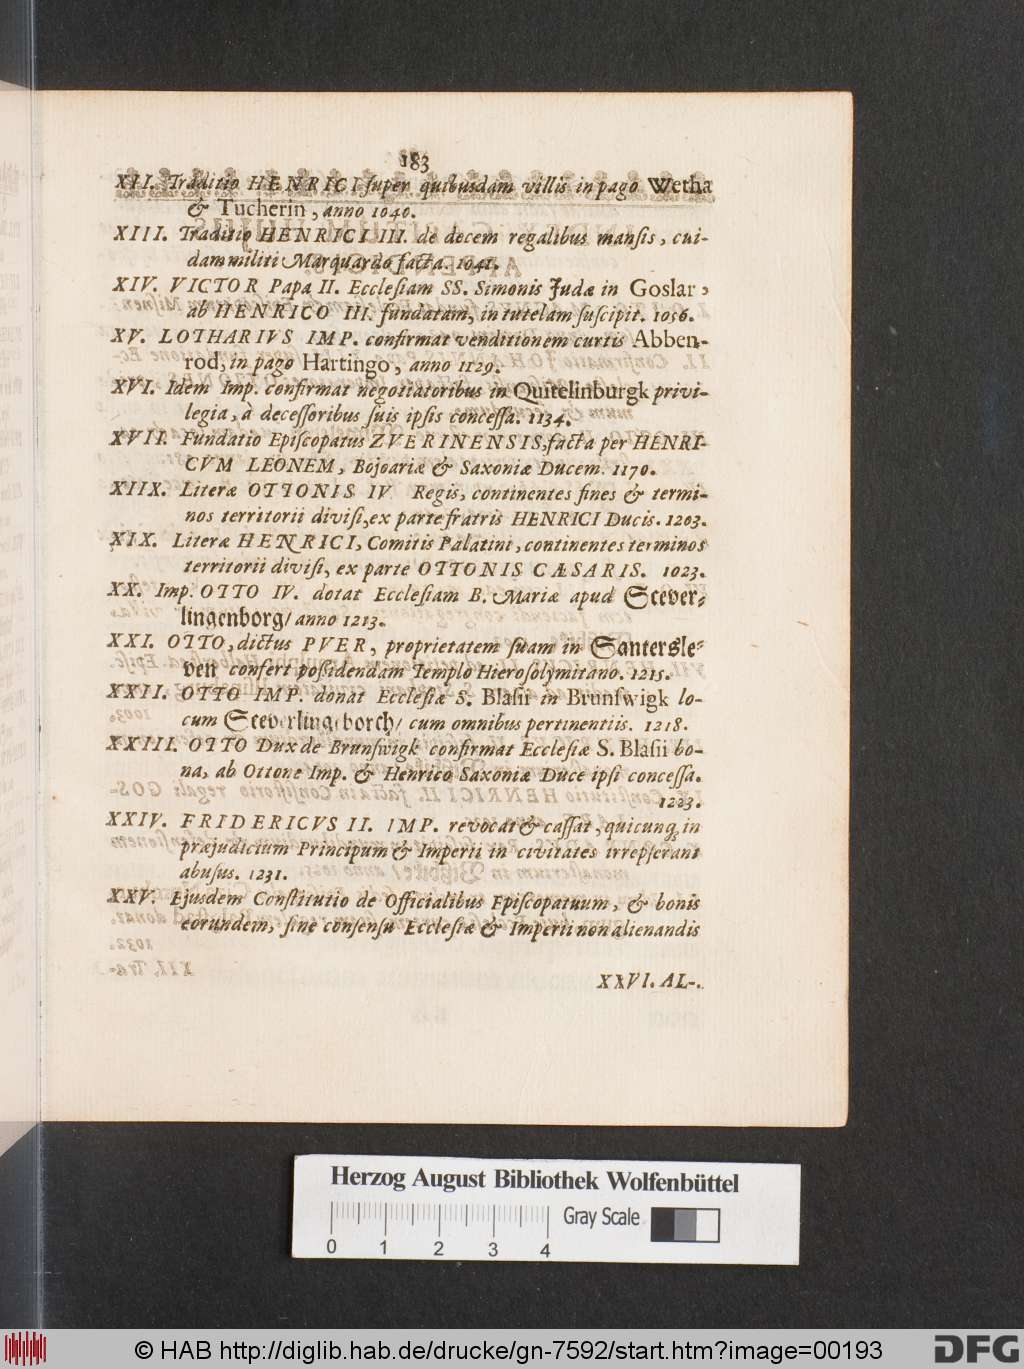 183
XII. Traditio HENRICI ſuper quibusdam villis in pago Wetha
& Tucherin, anno 1040.
XIII. Traditio HENRICI III. de decem regalibus manſis, cui-
dam militi Marquardo facta. 1041.
XIV. VICTOR Papa II. Eccleſiam SS. Simonis Judæ in Goslar,
ab HENRICO III. fundatam, in tutelam ſuſcipit. 1056.
XV. LOTHARIVS IMP. confirmat venditionem curtis Abben-
rod, in pago Hartingo, anno 1129.
XVI. Idem Imp. confirmat negotiatoribus in Quitelinburgk privi-
legia, à deceſſoribus ſuis ipſis conceſſa. 1134.
XVII. Fundatio Epiſcopatus ZVERINENSIS, facta per HENRI-
CVM LEONEM, Bojoariæ & Saxoniæ Ducem. 1170.
XIIX. Literæ OTTONIS IV Regis, continentes fines & termi-
nos territorii diviſi, ex parte fratris HENRICI Ducis. 1203.
XIX. Literæ HENRICI, Comitis Palatini, continentes terminos
territorii diviſi, ex parte OTTONIS CÆSARIS. 1023.
XX. Imp. OTTO IV. dotat Eccleſiam B. Mariæ apud Stever-
lingenborg/ anno 1213.
XXI. OTTO, dictus PVER, proprietatem ſuam in Santersle-
ven confert poßidendam Templo Hieroſolymitano. 1215.
XXII. OTTO IMP. donat Eccleſiæ S. Blaſii in Brunſwigk lo-
cum Steverlingeborch/ cum omnibus pertinentiis. 1218.
XXIII. OTTO Dux de Brunſwigk confirmat Eccleſiæ S. Blaſii bo-
na, ab Ottone Imp. & Henrico Saxoniæ Duce ipſi conceſſa.
1223.
XXIV. FRIDERICVS II. IMP. revocat & caſſat, quicunq; in
præjudicium Principum & Imperii in civitates irrepſerant
abuſus. 1231.
XXV. Ejusdem Conſtitutio de Officialibus Epiſcopatuum, & bonis
eorundem, ſine conſenſu Eccleſiæ & Imperii non alienandis
XXVI. AL-
Herzog August Bibliothek Wolfenbüttel
0 1 2 3 4
Gray Scale
© HAB http://diglib.hab.de/drucke/gn-7592/start.htm?image=00193
DFG